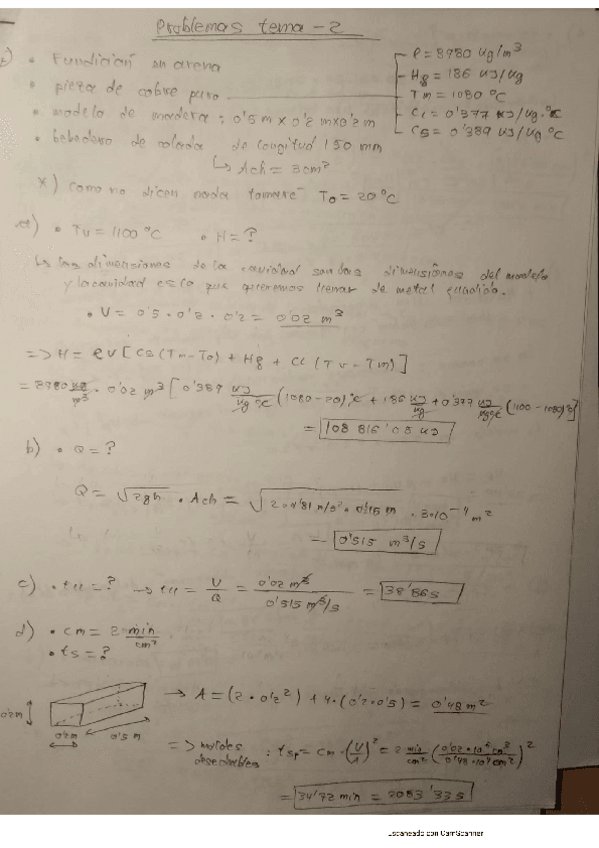 Problemas tema - 2
• Fundición en arena
• pieza de cobre puro
ρ = 8980 kg/m³
Hf = 186 kJ/kg
Tm = 1080 °C
CL = 0'377 kJ/kg·°C
Cs = 0'389 kJ/kg °C
• modelo de madera : 0'5 m x 0'2 m x 0'2 m
• bebedero de colada de longitud 150 mm
↳ Ach = 3 cm²
*) Como no dicen nada tomaré T0 = 20 °C
a) • Tv = 1100 °C • H = ?
↳ las dimensiones de la cavidad son las dimensiones del modelo
y la cavidad es la que queremos llenar de metal fundido.
• V = 0'5 · 0'2 · 0'2 = 0'02 m³
=> H = ρV [ Cs (Tm - T0) + Hf + CL (Tv - Tm) ]
= 8980 kg/m³ · 0'02 m³ [ 0'389 kJ/kg °C (1080 - 20) °C + 186 kJ/kg + 0'377 kJ/kg °C (1100 - 1080) °C ]
= 108 816'03 kJ
b) • Q = ?
Q = √2gh · Ach = √2 · 9'81 m/s² · 0'15 m · 3·10⁻⁴ m²
= 0'515 m³/s
c) • tll = ? → tll = V/Q = 0'02 m³ / 0'515 m³/s = 38'86 s
d) • cm = 2 min/cm²
• ts = ?
0'2 m
0'2 m
0'5 m
→ A = (2 · 0'2²) + 4 · (0'2 · 0'5) = 0'48 m²
=> moldes desechables : tsp = cm · (V/A)² = 2 min/cm² (0'02 · 10⁶ cm³ / 0'48 · 10⁴ cm²)²
= 34'72 min = 2083'33 s
Escaneado con CamScanner